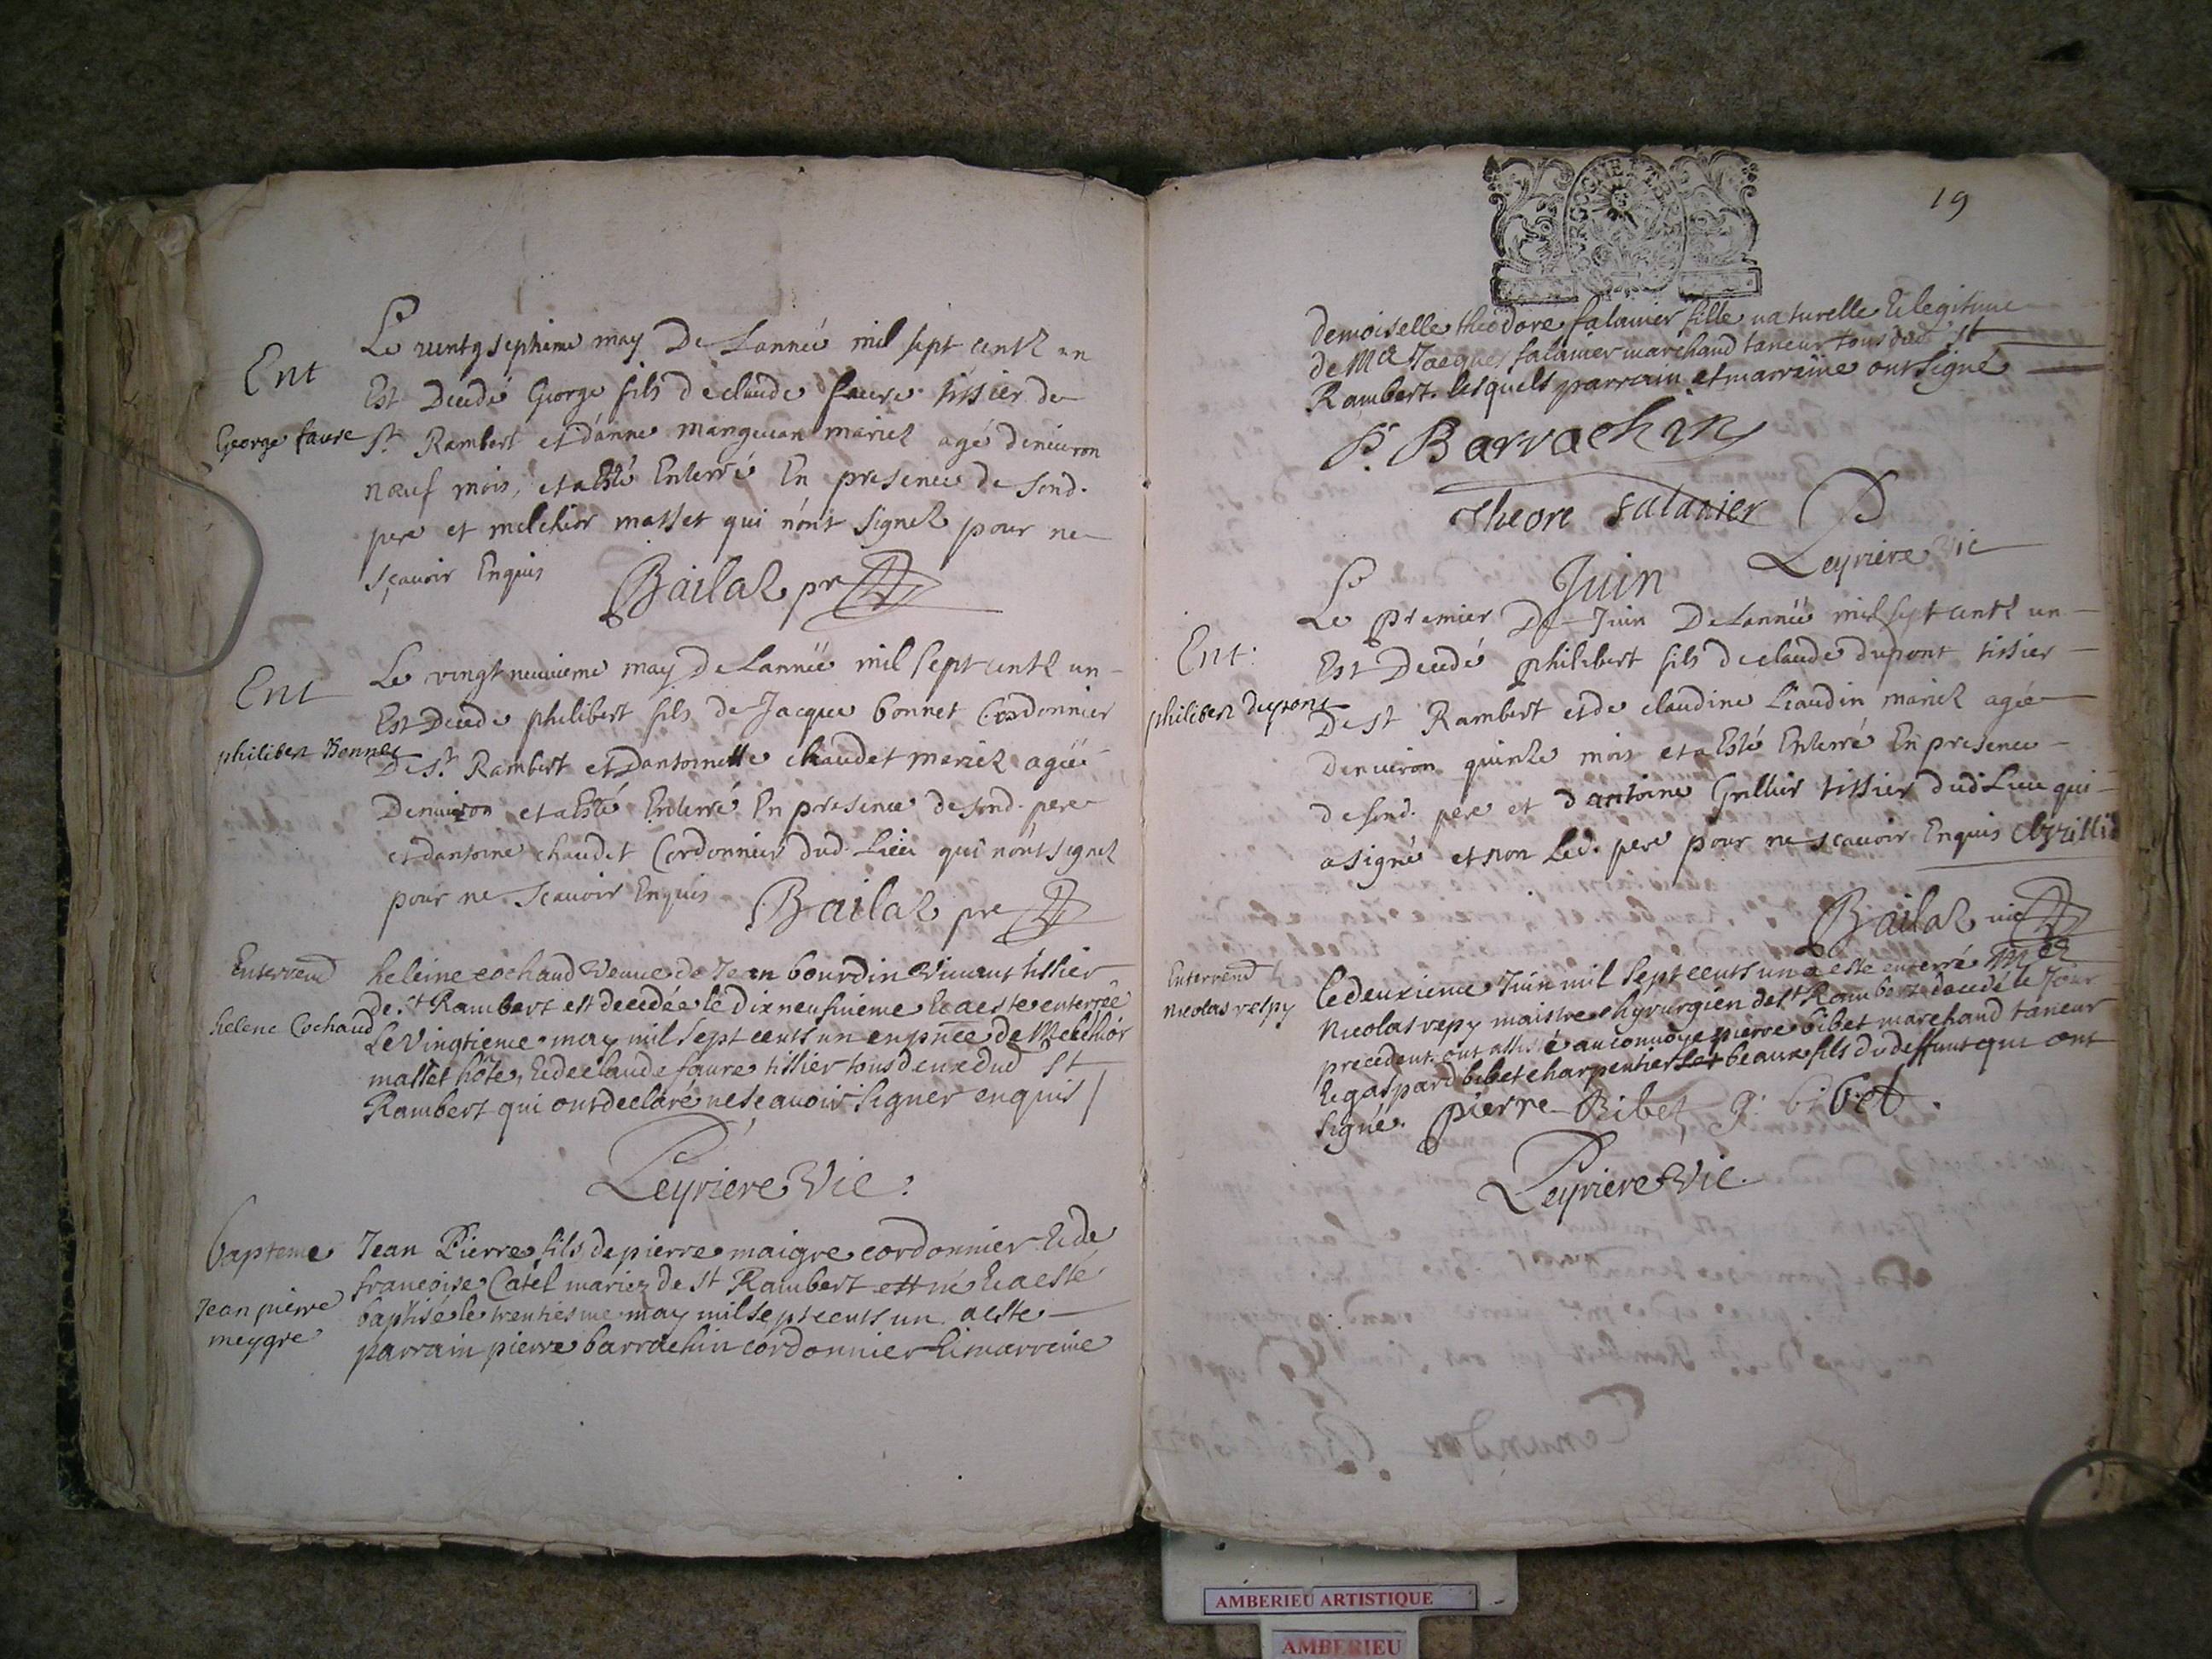 Ent
George faure
Le vintg septieme may De Lannëe mil sept centz un
Est Decedé George fils de claude faure tissier de
St. Rambert et d'anne manguean mariez agé denviron
nœuf mois, et a Esté Enterré En presence de sond.
pere et melchior masset qui n'ont signez pour ne
sçavoir Enquis
Bailaz pre
Ent
philibert Bonnet
Le vingt neuvieme may de Lannëe mil sept centz un
Est Decedé philibert fils de Jacque bonnet Cordonnier
De St. Rambert et Dantoinette chaudet mariez agée
Denviron et a Esté Enterré En presence de sond. pere
et dantoine chaudet Cordonnier dud. Lieu qui n'ont signez
pour ne scavoir Enquis
Bailaz pre
Enterremt
helene Cochaud
heleine cochaud veuve de Jean bourdin vivant tissier
de St Rambert est decedée le dix neufvieme & a esté enterrée
Le Vingtieme may mil sept cents un en pñce de Melchior
masset hôte, & de claude faure tissier tous deux dud St
Rambert qui ont declaré ne sçavoir signer enquis
Leyriere Vic.
bapteme
Jean pierre
meygre
Jean Pierre fils de pierre maigre cordonnier & de
françoise Catel mariez de St Rambert est né & a esté
baptisé le trentiesme may mil sept cents un a esté
parrain pierre barrachin cordonnier & marreine
19
demoiselle theodore salanier fille naturelle & legitime
de Me Jacques salanier marchand taneur tous dud St
Rambert. lesquels parrain et marreine ont signé
P. Barrachin
Theore salanier
Leyriere Vic
Juin
Ent.
philibert dupont
Le premier De Juin De Lannëe mil sept centz un
Est Decedé philibert fils de claude dupont tissier
De St Rambert et de claudine Liaudin mariez agée
Denviron quinze mois et a Esté Enterré En presence
de sond. pere et d'antoine Grillier tissier dud Lieu qui
a signé et non Led. pere pour ne scavoir Enquis
Bailaz vic
Enterremt
nicolas vespy
Le deuxieme Juin mil sept cents un a esté enterré Me
Nicolas vepy maistre chyrurgien de St Rambert decedé le Jour
precedent. ont assisté au convoye pierre bibet marchand taneur
& gaspard bibet charpentier ses beaux fils du deffunt qui ont
signé.
pierre Bibet
G. bibet.
Leyriere Vic.
AMBERIEU ARTISTIQUE
AMBERIEU